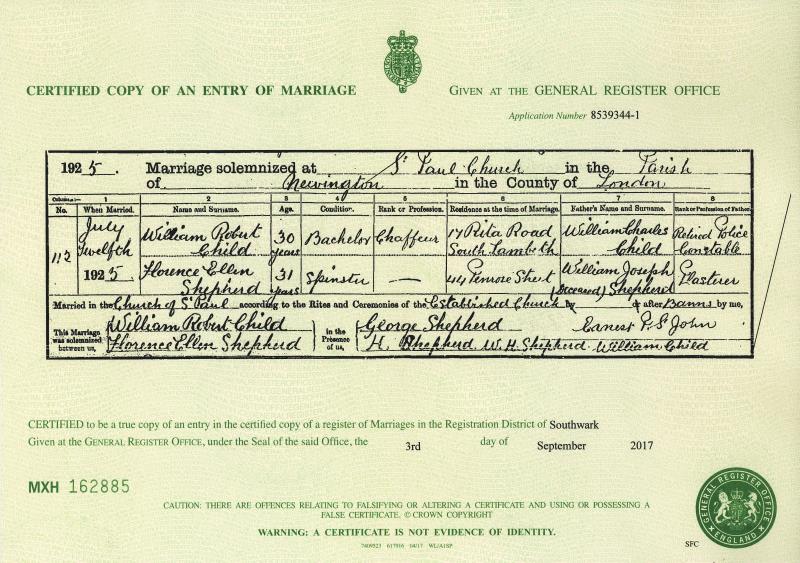 CERTIFIED COPY OF AN ENTRY OF MARRIAGE
GIVEN AT THE GENERAL REGISTER OFFICE
Application Number 8539344-1
1925. Marriage solemnized at St Paul Church in the Parish
of Newington in the County of London
Columns:— 1 2 3 4 5 6 7 8
No. When Married. Name and Surname. Age. Condition. Rank or Profession. Residence at the time of Marriage. Father's Name and Surname. Rank or Profession of Father.
112 July Twelfth 1925
William Robert Child 30 years Bachelor Chaffeur 17 Rita Road South Lambeth William Charles Child Retired Police Constable
Florence Ellen Shepherd 31 years Spinster — 44 Penrose Street William Joseph Shepherd (Deceased) Plasterer
Married in the Church of St Paul according to the Rites and Ceremonies of the Established Church by or after Banns by me,
This Marriage was solemnized between us,
William Robert Child
Florence Ellen Shepherd
in the Presence of us,
George Shepherd
H. Shepherd. W. H. Shepherd. William Child
Ernest F. St John
CERTIFIED to be a true copy of an entry in the certified copy of a register of Marriages in the Registration District of Southwark
Given at the GENERAL REGISTER OFFICE, under the Seal of the said Office, the 3rd day of September 2017
MXH 162885
CAUTION: THERE ARE OFFENCES RELATING TO FALSIFYING OR ALTERING A CERTIFICATE AND USING OR POSSESSING A
FALSE CERTIFICATE. © CROWN COPYRIGHT
WARNING: A CERTIFICATE IS NOT EVIDENCE OF IDENTITY.
GENERAL REGISTER OFFICE
ENGLAND
SFC